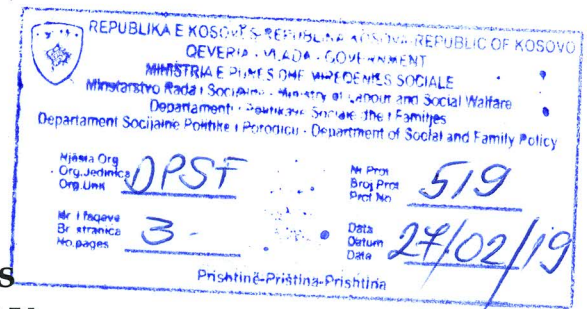 REPUBLIKA E KOSOVËS-REPUBLIKA KOSOVA-REPUBLIC OF KOSOVO
QEVERIA - VLADA - GOVERNMENT
MINISTRIA E PUNES DHE MIREQENIES SOCIALE
Ministarstvo Rada i Socijalne - Ministry of Labour and Social Walfare
Departamenti i Politikave Sociale dhe i Familjes
Departament Socijalne Politike i Porodicu - Department of Social and Family Policy
Njësia Org
Org.Jedinica
Org.Unit
DPSF
Nr Prot
Broj Prot
Prot No
519
Nr i faqeve
Br stranica
No.pages
3-
Data
Datum
Date
27/02/19
Prishtinë-Priština-Prishtina
s